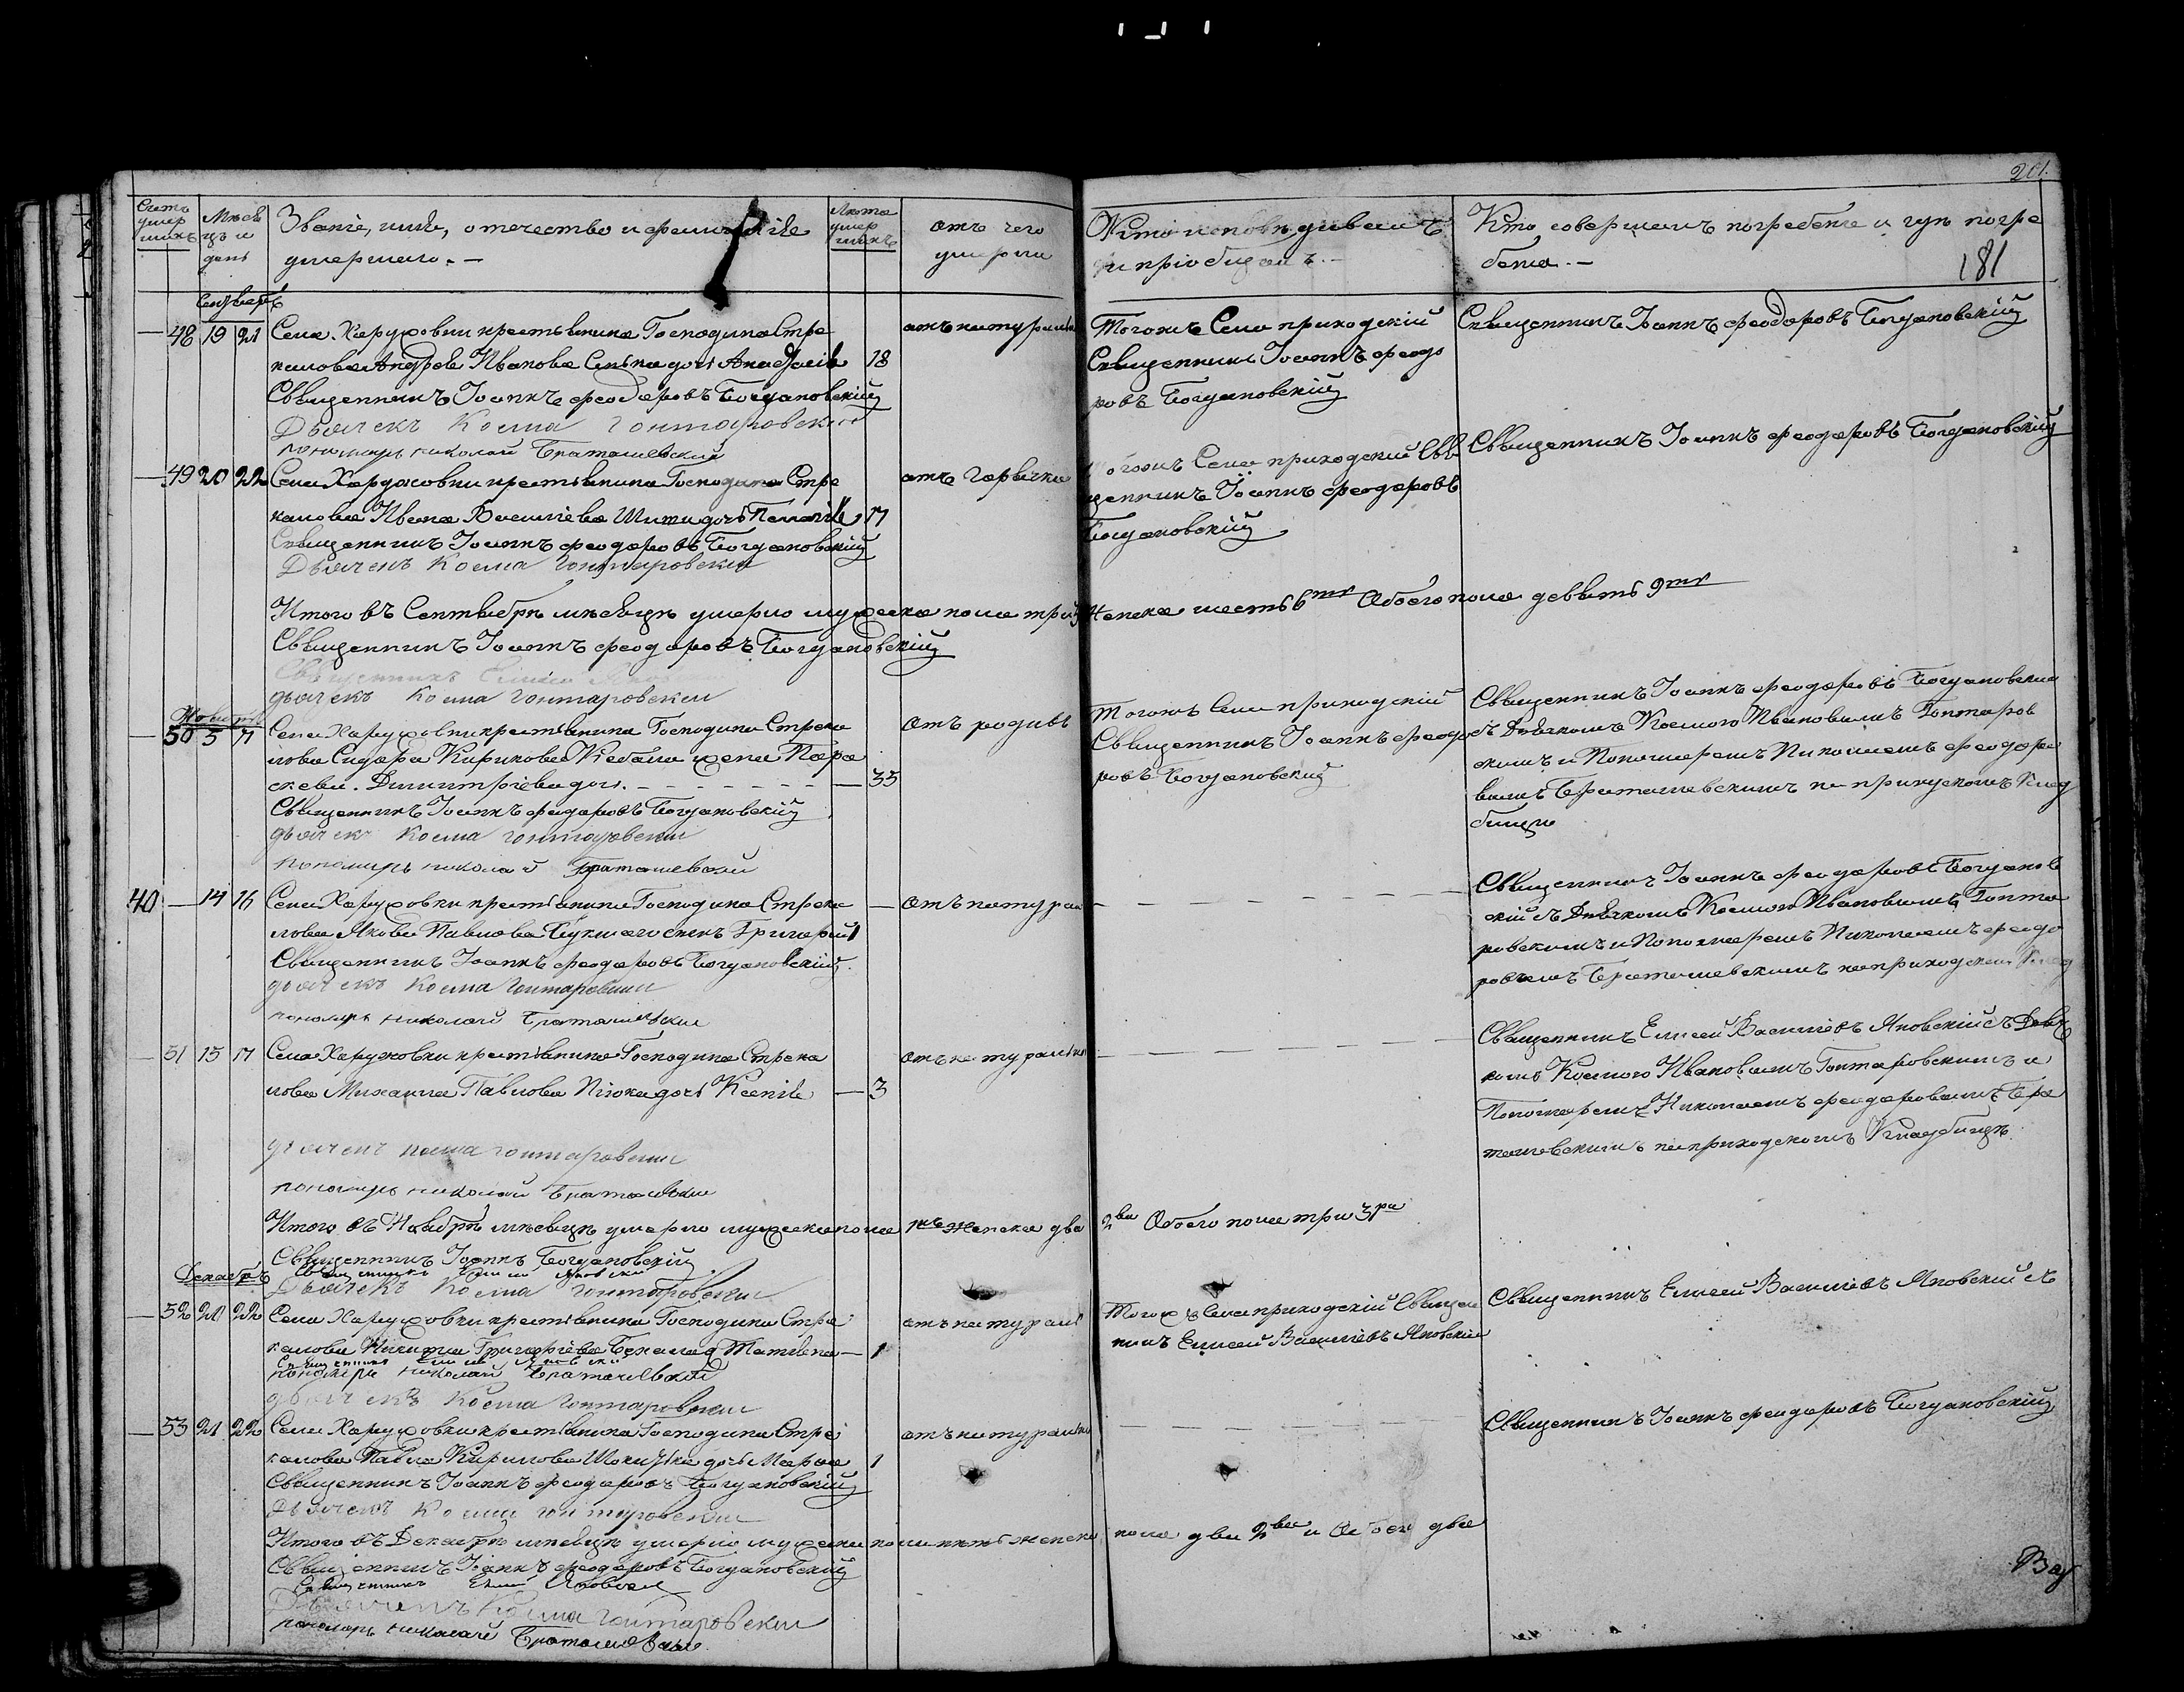 201.
181
Счетъ умер шихъ
Мѣся цъ и день
Званіе, имя, отечество и фамилія
умершаго. —
Лѣта умер шихъ
отъ чего
умерли
Кто исповѣдывалъ
и пріобщалъ. —
Кто совершалъ погребеніе и гдѣ погре
бены. —
48 19 21 Села Харуховки крестьянина Господина Стре
калова Андрея Иванова дочь Анастасія 18
Священникъ Іоаннъ Феодоровъ Богдановскій
Дьячекъ Косма Гонтаровскій
пономарь Николай Браташевскій
отъ натураль
Тогожъ Села приходскій
Священникъ Іоаннъ Феодо
ровъ Богдановскій
Священникъ Іоаннъ Феодоровъ Богдановскій
49 20 22 Села Харуховки крестьянина Господина Стре
калова Ивана Василіева дочь Пелагія 17
Священникъ Іоаннъ Феодоровъ Богдановскій
Дьячекъ Косма Гонтаровскій
отъ горячки
Тогожъ Села приходскій Свя
щенникъ Іоаннъ Феодоровъ
Богдановскій
Священникъ Іоаннъ Феодоровъ Богдановскій
Итого въ Сентябрѣ мѣсяцѣ умерло мужеска пола три 3 женска шесть 6 Обоего пола девять 9
Священникъ Іоаннъ Феодоровъ Богдановскій
Священникъ Елисей
дьячекъ Косма Гонтаровскій
Ноябрь
50 5 7 Села Харуховки крестьянина Господина Стрека
лова Сидора Кирикова жена Пара
скева Димитріева дочь. 35
Священникъ Іоаннъ Феодоровъ Богдановскій
дьячекъ Косма Гонтаровскій
пономарь Николай Браташевскій
отъ родивъ
Тогожъ Села приходскій
Священникъ Іоаннъ Феодо
ровъ Богдановскій
Священникъ Іоаннъ Феодоровъ Богдановскій
съ Дьячкомъ Космою Ивановымъ Гонтаров
скимъ и Пономаремъ Николаемъ Феодоро
вымъ Браташевскимъ на приходскомъ Клад
бищѣ
40 — 14 16 Села Харуховки крестьянина Господина Стрека
лова Якова Павлова сынъ Григорій 1
Священникъ Іоаннъ Феодоровъ Богдановскій
дьячекъ Косма Гонтаровскій
пономарь Николай Браташевскій
отъ натурал
Священникъ Іоаннъ Феодоровъ Богданов
скій съ Дьячкомъ Космою Ивановымъ Гонта
ровскимъ и Пономаремъ Николаемъ Феодо
ровымъ Браташевскимъ на приходском Клад
51 15 17 Села Харуховки крестьянина Господина Стрека
лова Михаила Павлова дочь Ксенія — 3
дьячекъ Косма Гонтаровскій
пономарь Николай Браташевскій
отъ натуральн
Священникъ Елисей Василіевъ Яновскій съ Дьяч
комъ Космою Ивановымъ Гонтаровскимъ и
Пономаремъ Николаемъ Феодоровымъ Бра
ташевскимъ на приходскомъ Кладбищѣ
Итого въ Ноябрѣ мѣсяцѣ умерло мужеска пола 1нъ женска два 2ва Обоего пола три 3ри
Священникъ Іоаннъ Богдановскій
Священникъ Елисей Яновскій
Дьячекъ Косма Гонтаровскій
Декабрь
52 21 22 Села Харуховки крестьянина Господина Стре
калова Никиты Григоріева Татіяна — 1
Священникъ Елисей Яновскій
пономарь Николай Браташевскій
дьячекъ Косма Гонтаровскій
отъ натураль
Тогожъ Села приходскій Священ
никъ Елисей Василіевъ Яновскій
Священникъ Елисей Василіевъ Яновскій съ
53 21 22 Села Харуховки крестьянина Господина Стре
калова Павла Кирилова дочь Марья 1
Священникъ Іоаннъ Феодоровъ Богдановскій
Дьячекъ Косма Гонтаровскій
отъ натуральн
Священникъ Іоаннъ Феодоровъ Богдановскій
Итого въ Декабрѣ мѣсяцѣ умерло мужеска пола нѣтъ женска пола два 2ва и Обоего два
Священникъ Іоаннъ Феодоровъ Богдановскій
Священникъ Елисей Яновскій
Дьячекъ Косма Гонтаровскій
пономарь Николай Браташевскій